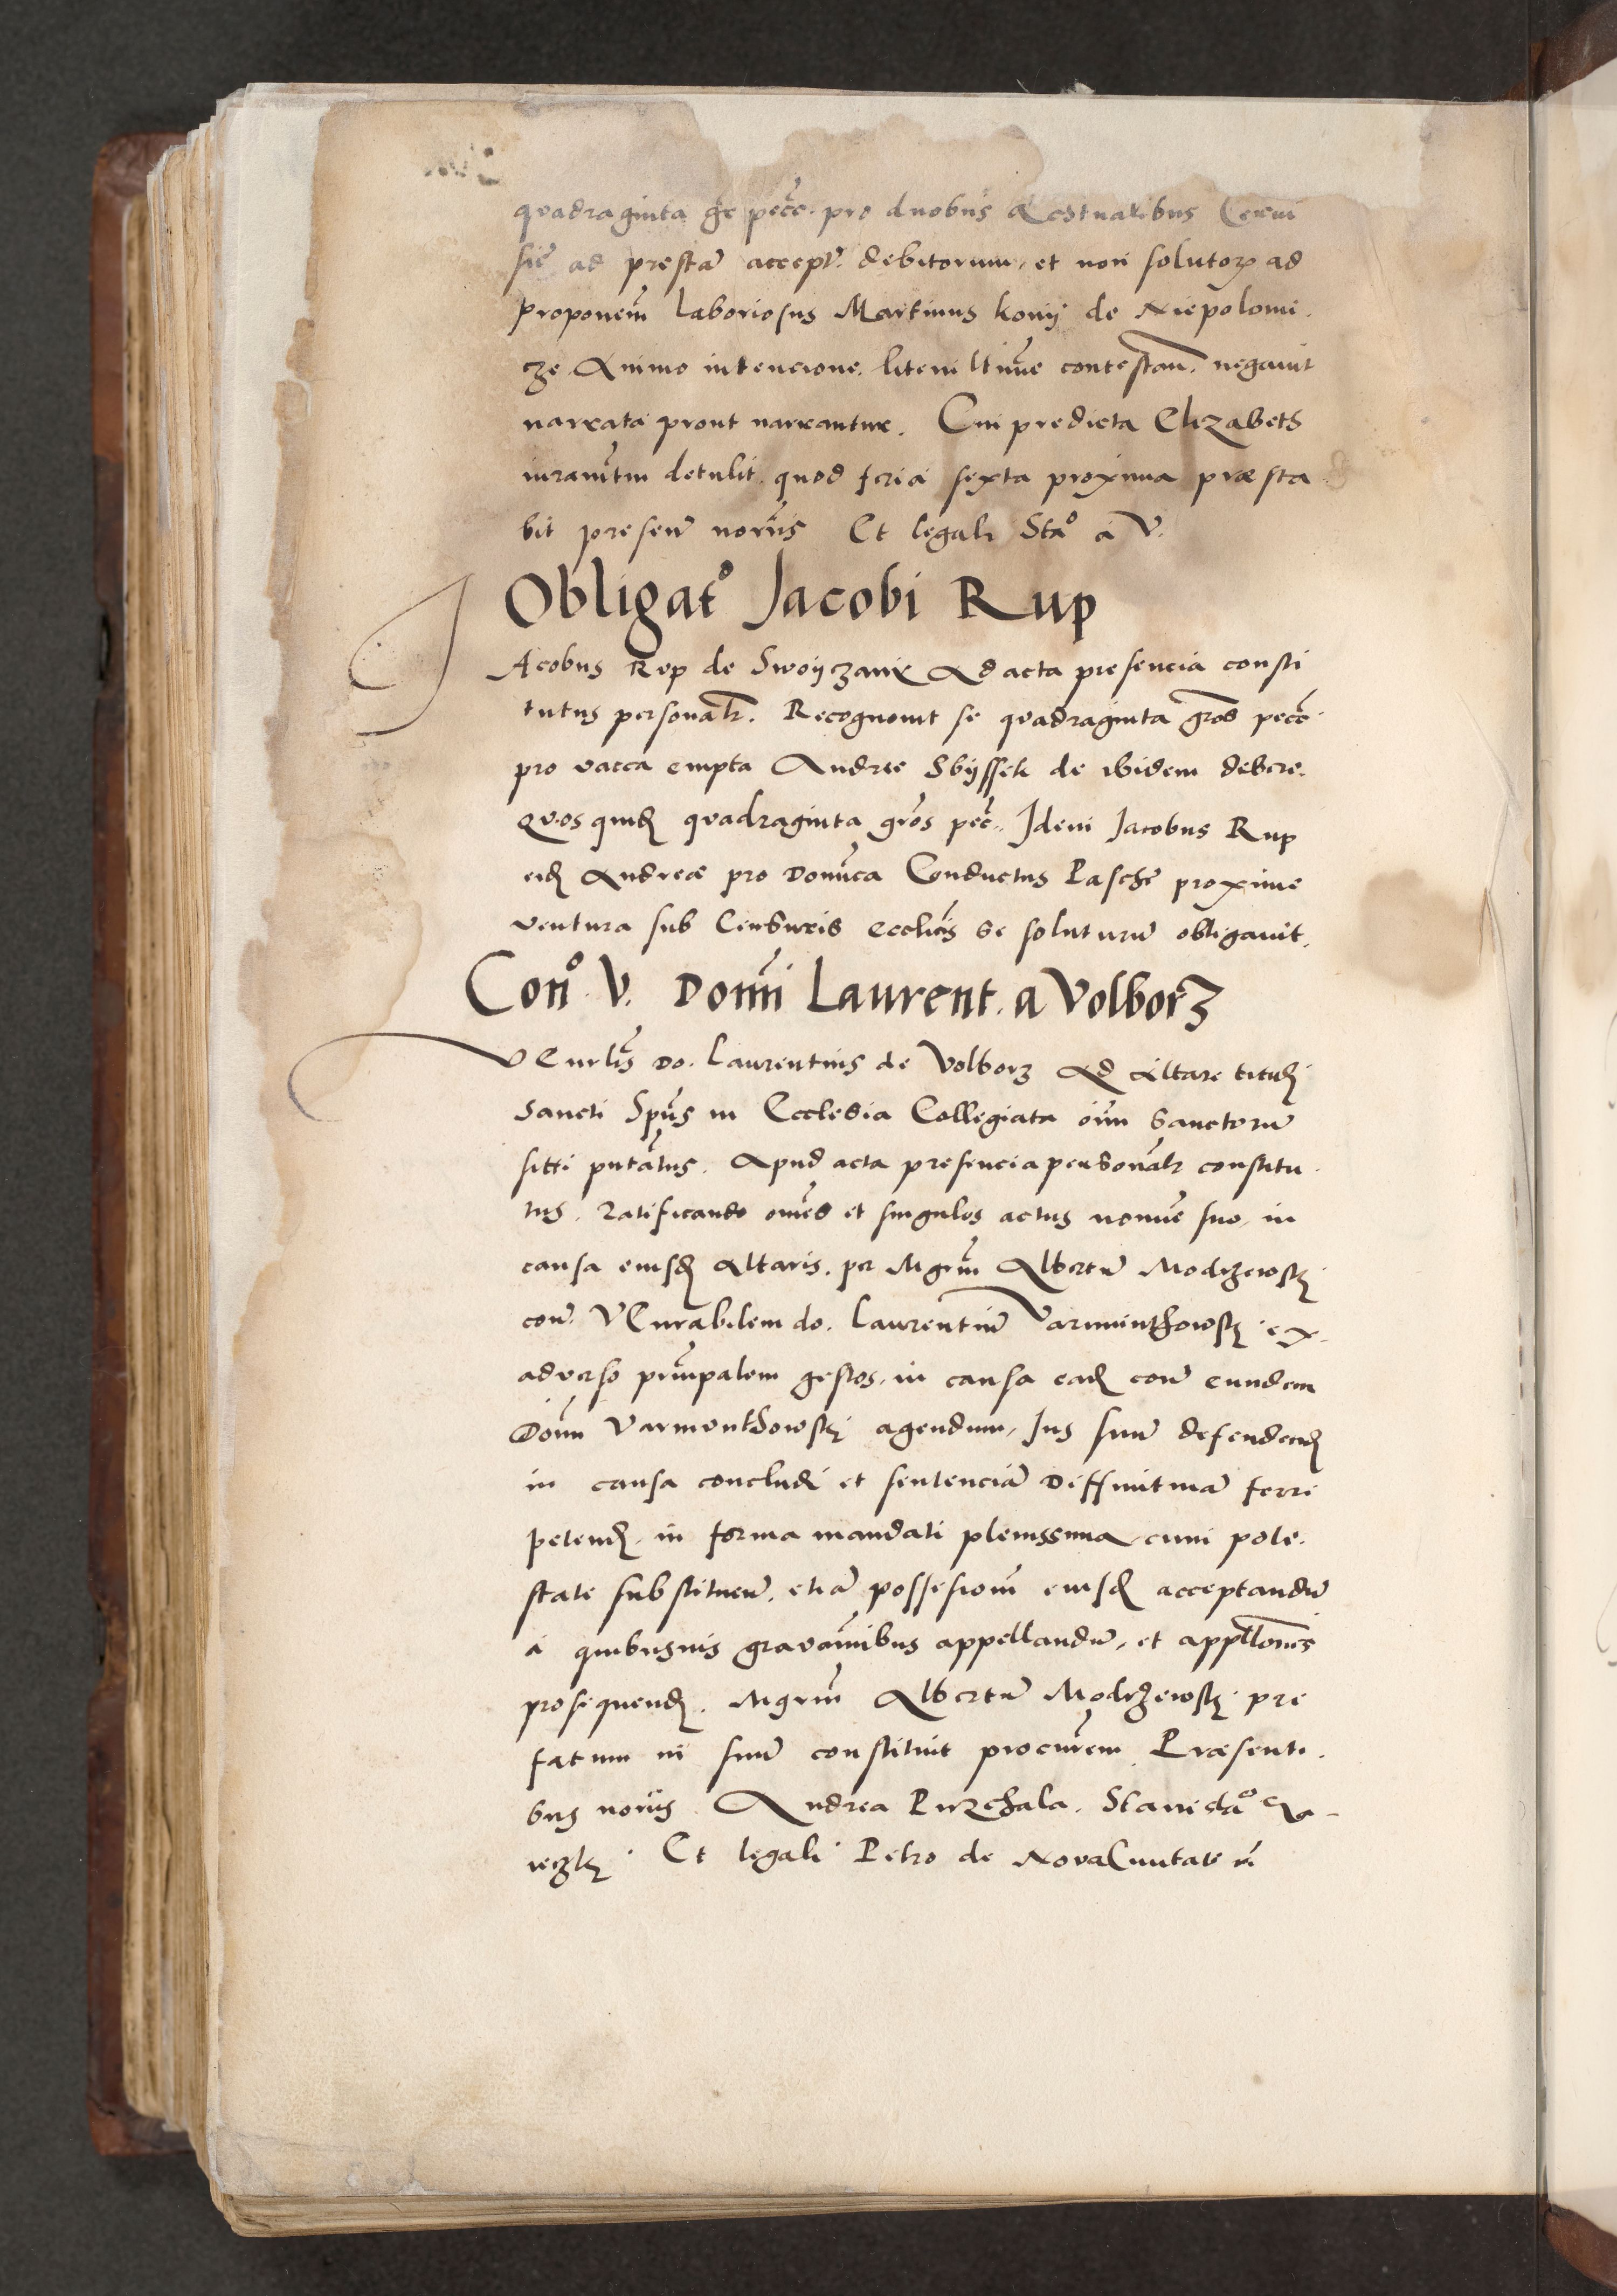 quadraginta gr̄ pec̄e. pro duobus Aestualibus Cerui
sie ad prestā accept̄. debitorum, et non solutoꝝ ad
proponem̄ Laboriosus Martinus konij de Niepolomi.
cze Animo intencione. litem lt̄nue contestan̄. negauit
narrata prout narrantur. Cui predicta Elizabeth
iuramtm̄ detulit. quod feria sexta proxima præsta
bit presen̄ norijs Et legalr Sta° a V.
Obligat° Jacobi Rup
JAcobus Rup de Swoijczanij Ad acta presencia consti
tutus personalr. Recognouit se quadraginta gros̄ pec̄e
pro vacca empta Andree Sbijssek de ibidem debere.
Quos quidꝭ quadraginta gros̄ pec̄. Idem Jacobus Rup
eidꝭ Andreæ pro Domica Conductus Paschē proxime
ventura sub Censuris eccliciis se soluturū obligauit.
Con° V. Domi Laurent. a Volborz
VEnrlis̄ Do. Laurentius de Volborz Ad Altare tituli
Sancti Spūs in Ecclesia Collegiata oīm Sanctorū
sitti putatus. Apud acta presencia personalr constitu
tus. Ratificando omēs et singulos actus nomīe suo, in
causa eiusdꝭ Altaris. per Mgrm̄ Albertū Modrzewskj
con̄. VEnrabilem do. Laurentiū Varminthowskj ex
aduerso prīncipalem gestos, in causa eadꝭ con̄ eundem
Dōnm Varmonthowskj agendum, Jus suū defendendꝭ
in causa concludi et sentenciā Diffinitiuā ferri
petendꝭ. in forma mandati plenissima cum pote.
state substituen̄. etiā possesionem̄ eiusdꝭ acceptandū
a quibusuis grauaminibus appellandū, et appllones
prosequendꝭ. Mgrm̄ Albertū Modrzewskj pre
fatum in suū constituit procurem̄. Præsenti.
bus norijs. Andrea Purzchala. Stanisla°
Et legali Petro de Nova Ciuitate n̄